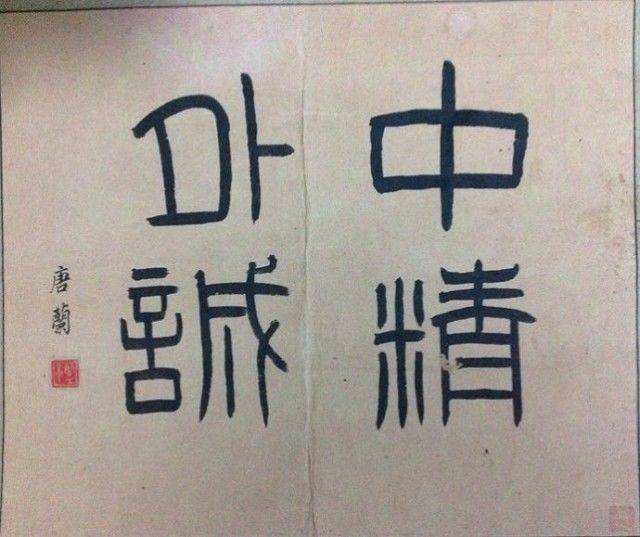 中精
外誠
唐蘭